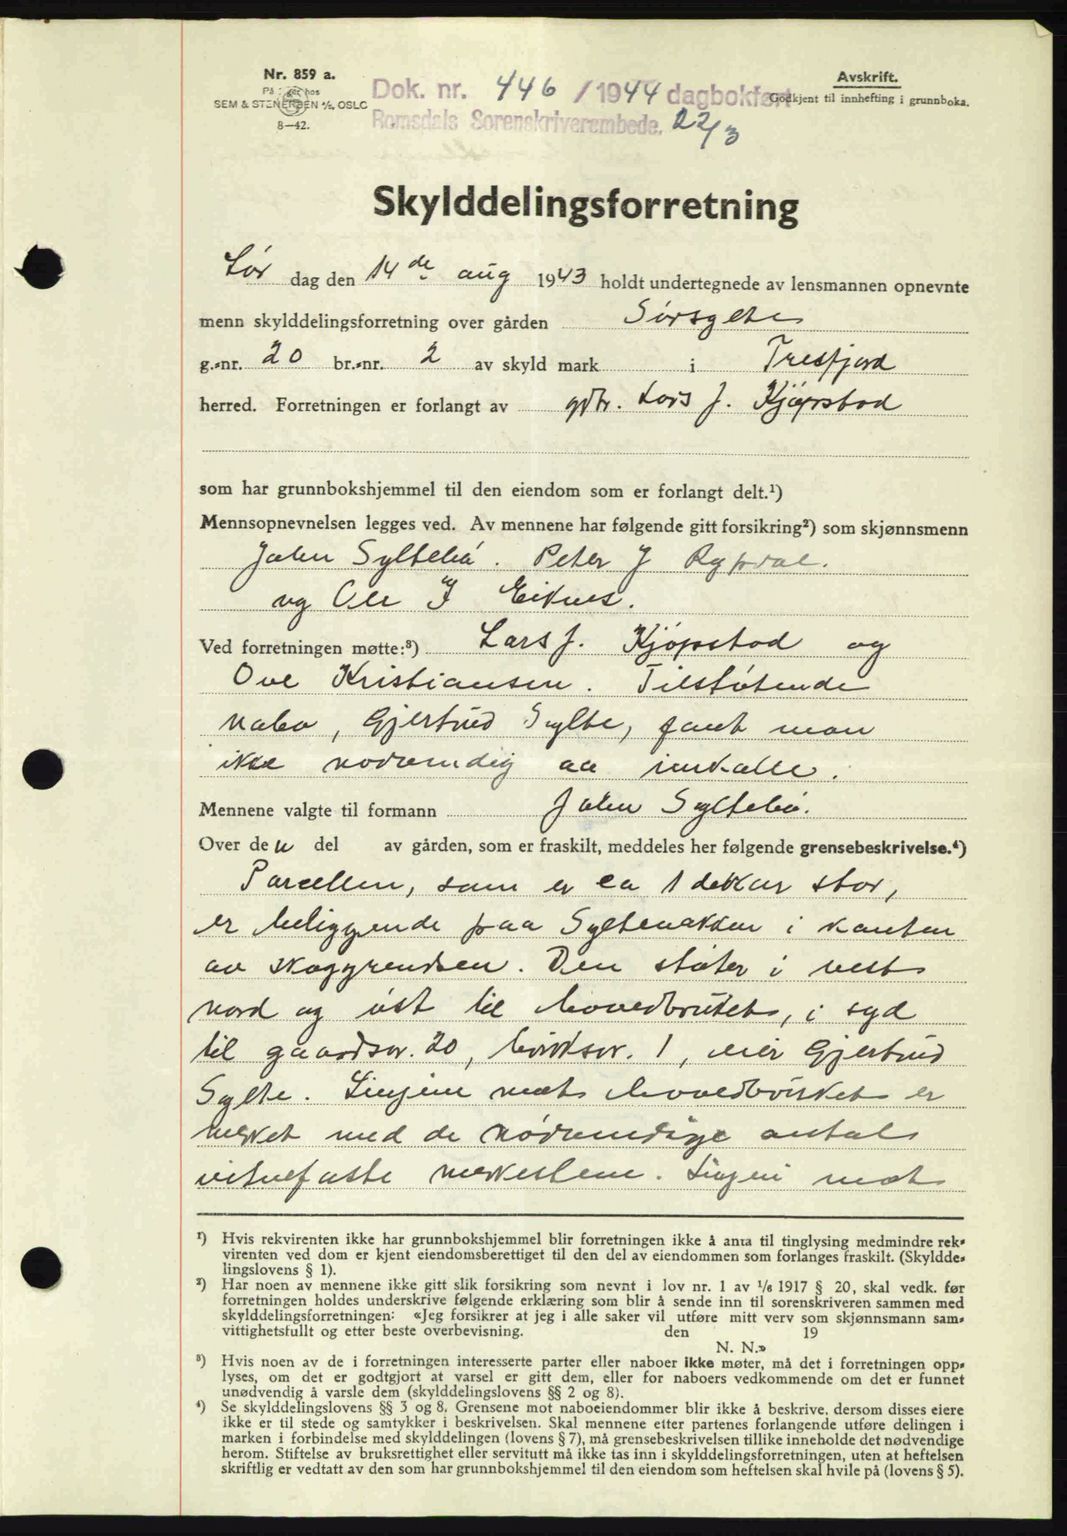 Nr. 859 a.
På lager hos
SEM & STENERSEN A/S, OSLO
8—42.
Dok. nr. 446 / 1944 dagbokført
Romsdals Sorenskriverembede. 22/3
Avskrift.
Godkjent til innhefting i grunnboka.
Skylddelingsforretning
Lør dag den 14de aug 1943 holdt undertegnede av lensmannen opnevnte
menn skylddelingsforretning over gården Sørsylte
g.-nr. 20 br.-nr. 2 av skyld mark i Tresfjord
herred. Forretningen er forlangt av gdbr. Lars J. Kjøpstad
som har grunnbokshjemmel til den eiendom som er forlangt delt.¹)
Mennsopnevnelsen legges ved. Av mennene har følgende gitt forsikring²) som skjønnsmenn
Johan Syltebø. Peter J Rypdal.
og Ole J Eiknes.
Ved forretningen møtte:³) Lars J. Kjøpstad og
Ove Kristiansen. Tilstøtende
nabo, Gjertrud Sylte, fant man
ikke nødvendig aa innkalle.
Mennene valgte til formann Johan Syltebø.
Over den del av gården, som er fraskilt, meddeles her følgende grensebeskrivelse.⁴)
Parcellen, som er ca 1 dekar stor,
er beliggende paa Syltenakken i kanten
av skoggrendsen. Den støter i vest
nord og øst til hovedbruket, i syd
til gaardsnr. 20, bruksnr. 1, eier Gjertrud
Sylte. Linjene mot hovedbruket er
merket med de nødvendige antal
vitnefaste merkestene. Linjen mot
¹) Hvis rekvirenten ikke har grunnbokshjemmel blir forretningen ikke å anta til tinglysing medmindre rek-
virenten ved dom er kjent eiendomsberettiget til den del av eiendommen som forlanges fraskilt. (Skyldde-
lingslovens § 1).
²) Har noen av mennene ikke gitt slik forsikring som nevnt i lov nr. 1 av 1/6 1917 § 20, skal vedk. før
forretningen holdes underskrive følgende erklæring som blir å sende inn til sorenskriveren sammen med
skylddelingsforretningen: «Jeg forsikrer at jeg i alle saker vil utføre mitt verv som skjønnsmann sam-
vittighetsfullt og etter beste overbevisning. den 19
N. N.»
³) Hvis noen av de i forretningen interesserte parter eller naboer ikke møter, må det i forretningen opp-
lyses, om det er godtgjort at varsel er gitt dem, eller for naboers vedkommende om det er funnet
unødvendig å varsle dem (skylddelingslovens §§ 2 og 8).
⁴) Se skylddelingslovens §§ 3 og 8. Grensene mot naboeiendommer blir ikke å beskrive, dersom disses eiere
ikke er til stede og samtykker i beskrivelsen. Skal mennene etter partenes forlangende utføre delingen i
marken i forbindelse med skylddelingen (lovens § 7), må grensebeskrivelsen tillike inneholde det nødvendige
herom. Stiftelse av bruksrettighet eller servitutt må ikke tas inn i skylddelingsforretningen, uten at heftelsen
skriftlig er vedtatt av den som har grunnbokshjemmel til den eiendom som heftelsen skal hvile på (lovens § 5).